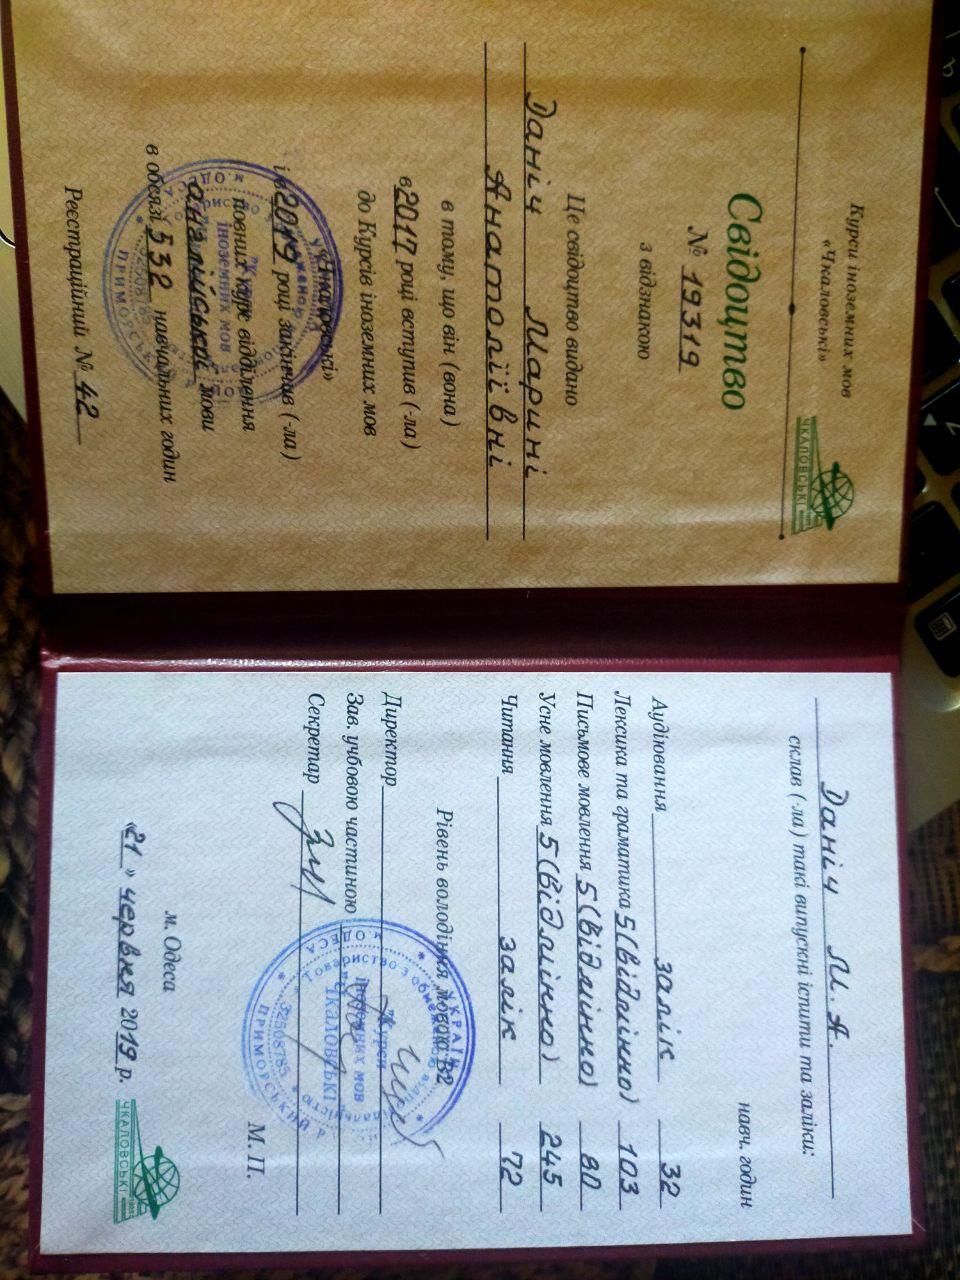 Курси іноземних мов
«Чкаловські»
ЧКАЛОВСЬКІ
Свідоцтво
№ 19319
з відзнакою
Це свідоцтво видано
Даніч Марині
Анатоліївні
в тому, що він (вона)
в 2017 році вступив (-ла)
до Курсів іноземних мов
«Чкаловські»
і в 2019 році закінчив (-ла)
повний курс відділення
англійської мови
в обсязі 532 навчальних годин
Реєстраційний № 42
Даніч М. А.
склав (-ла) такі випускні іспити та заліки:
навч. годин
Аудіювання залік 32
Лексика та граматика 5 (відмінно) 103
Письмове мовлення 5 (відмінно) 80
Усне мовлення 5 (відмінно) 245
Читання залік 72
Рівень володіння мовою B2
Директор
Зав. учбовою частиною
Секретар
М. П.
УКРАЇНА
м. ОДЕСА
ПРИМОРСЬКИЙ Р
Товариство з обмеженою відповідальністю
"Курси
іноземних мов
"ЧКАЛОВСЬКІ"
32508785
м. Одеса
«21» червня 2019 р.
ЧКАЛОВСЬКІ